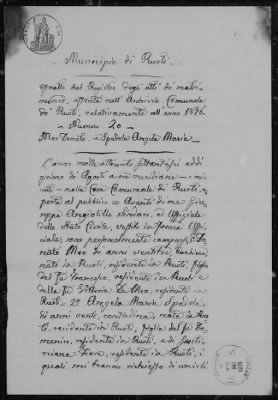 Municipio di Ruoti
Estratto dal Registro degli atti di matri-
monio, esistente nell'Archivio Comunale
di Ruoti, relativamente all'anno 1876.
Numero 20
Meo Donato e Spadola Angela Maria
L'anno mille ottocento settantasei addì
primo di Agosto a ore meridiane
nella Casa Comunale di Ruoti, a-
perta al pubblico = Avanti di me Giu-
seppe Sindaco, ed Uffiziale
dello Stato Civile, vestito in forma Uffi-
ciale, sono personalmente comparsi, 1º Do-
nato Meo di anni ventitre,
nato in Ruoti, residente in Ruoti, figlio
del fu Francesco, residente in Ruoti e
della fu De Meo, residente in
Ruoti = 2º Angela Maria Spadola
di anni venti, contadina, nata in Ruo-
ti, residente in Ruoti, figlia del fu Do-
menico, residente in Ruoti, e di
residente in Ruoti, i
quali mi hanno richiesto di unirli